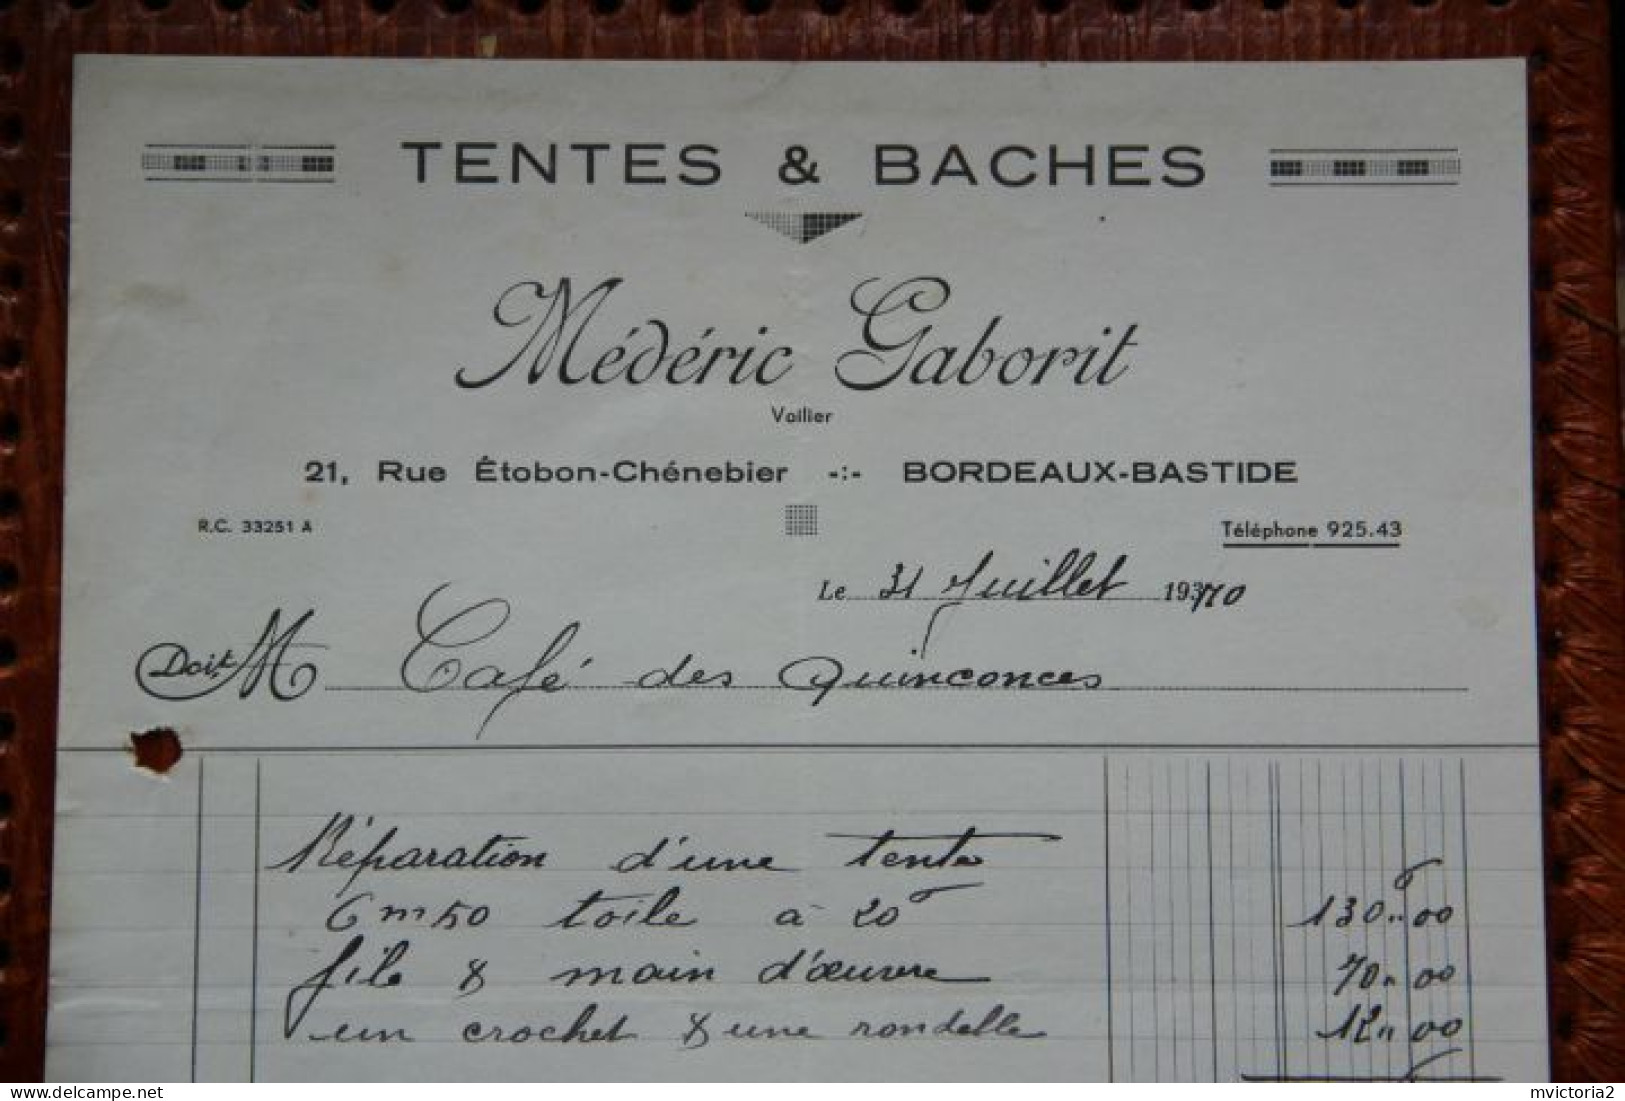 TENTES & BACHES
Médéric Gaborit
Voilier
21, Rue Étobon-Chénebier -:- BORDEAUX-BASTIDE
R.C. 33251 A
Téléphone 925.43
Le 31 Juillet 193
Doit M Café des Quinconces
Réparation d'une tente
6m50 toile à 20f 130"00
fil & main d'œuvre 70"00
un crochet & une rondelle 12"00
delcampe.net
mvictoria2